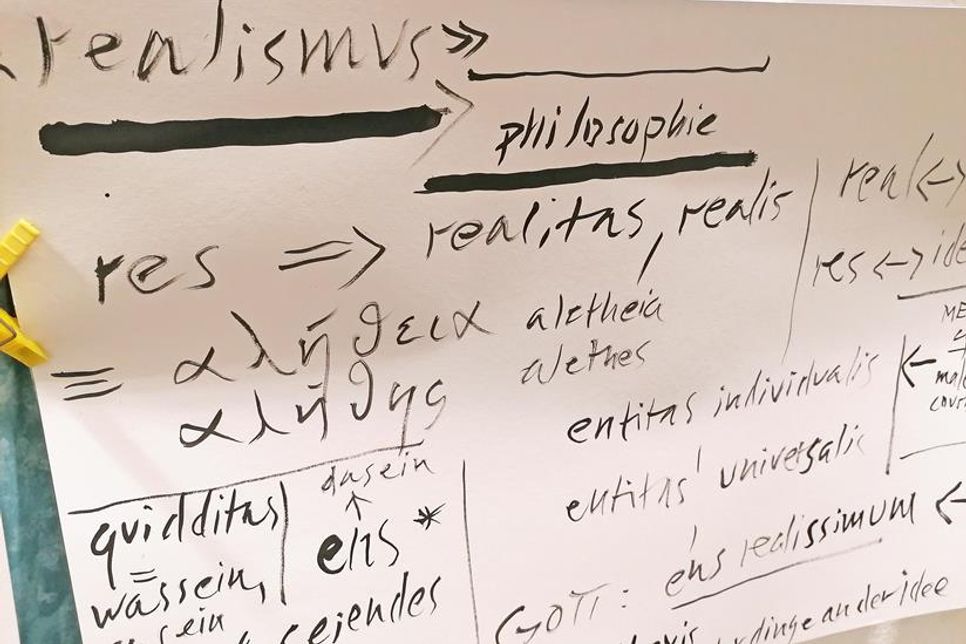 realismus»
philosophie
res => realitas, realis
real <->
res <-> ide
≡ αλήθεια aletheia
αλήθης alethes
entitas individualis
entitas universalis
quidditas
=
wassein,
dasein
↑
ens *
sejendes
GOTT: ens realissimum <-
dinge an der idee